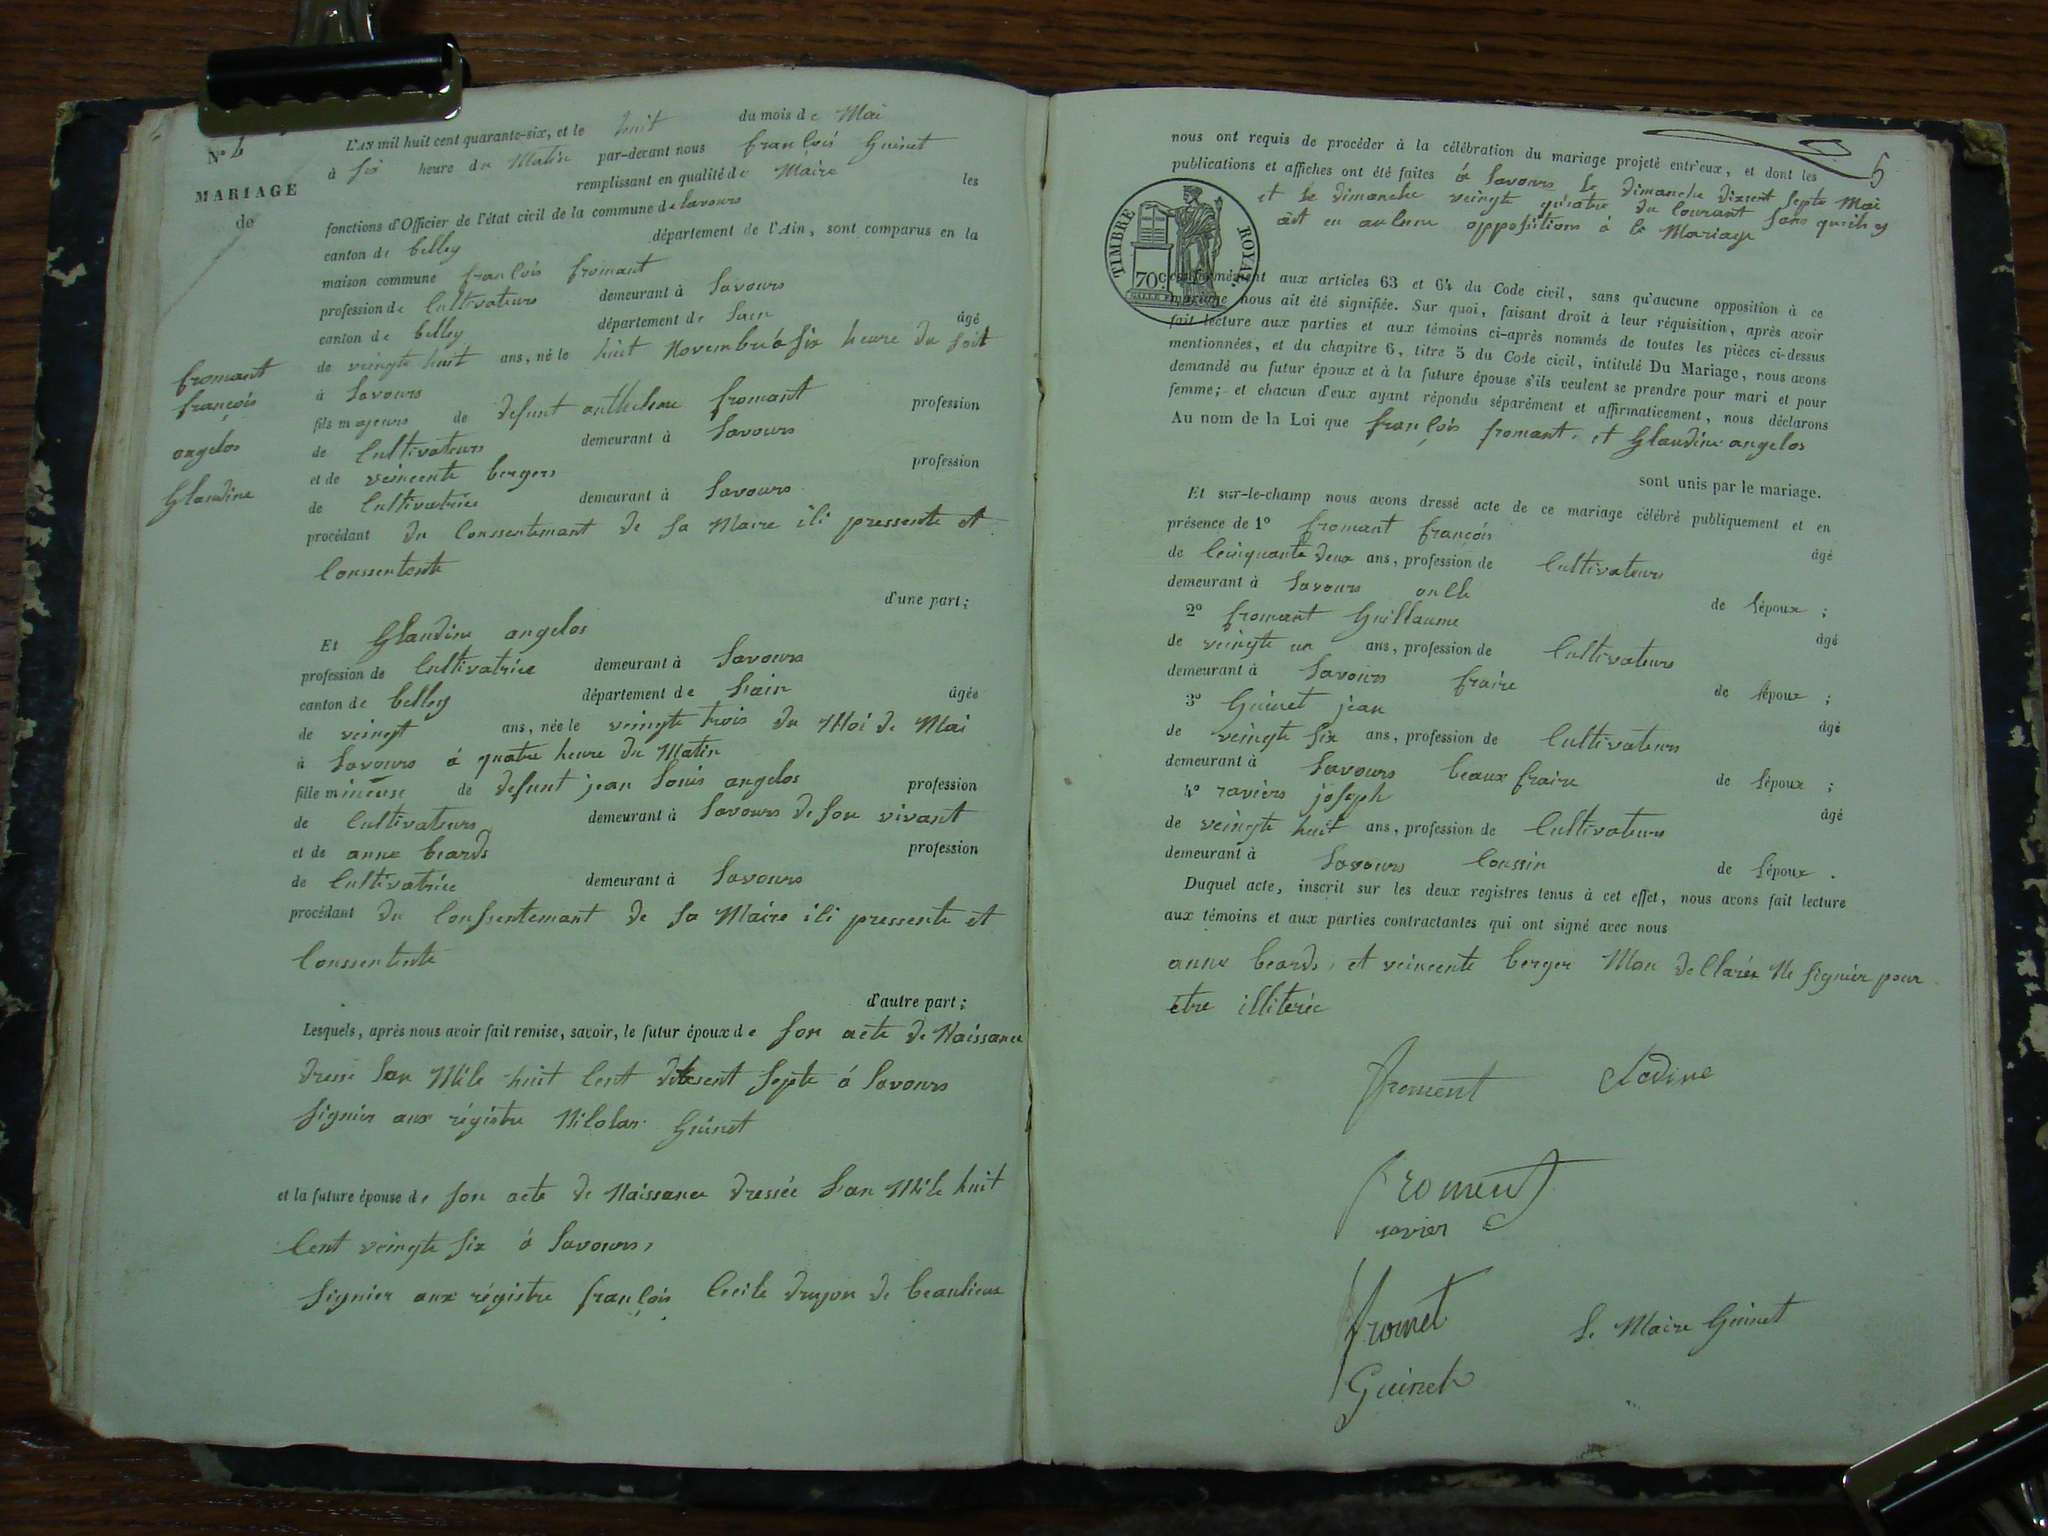 N° 4
MARIAGE
de
fromant
françois
angelos
Glaudine
L'AN mil huit cent quarante-six, et le huit du mois de Mai
à six heure du Matin par-devant nous françois Guinet
remplissant en qualité de Maire les
fonctions d'Officier de l'état civil de la commune de lavours
canton de belley département de l'Ain, sont comparus en la
maison commune françois fromant
profession de Cultivateurs demeurant à Lavours
canton de belley département de Lain âgé
de veingte huit ans, né le huit Novembre á six heure du soit
à Lavours
fils majeurs de defunt anthelme fromant profession
de Cultivateurs demeurant à Lavours
et de veincente bergers profession
de Cultivatrice demeurant à Lavours
procédant du Conssentemant de sa Maire ili pressente et
Conssentente
d'une part;
Et Glaudine angelos
profession de Cultivatrice demeurant à Lavours
canton de belley département de Lain âgée
de veingt ans, née le veingte trois du Moi de Mai
à Lavours á quatre heure du Matin
fille mineuse de defunt jean Louis angelos profession
de Cultivateurs demeurant à Lavours de son vivant
et de anne beards profession
de Cultivatrice demeurant à Lavours
procédant du Conssentemant de sa Maire ili pressente et
Conssentente
d'autre part;
Lesquels, après nous avoir fait remise, savoir, le futur époux de son acte de Naissance
dressé Lan Mile huit Cent septe á Lavours
signier aux régistre Nicolas Guinet
et la future épouse de son acte de Naissance dressée Lan Mile huit
Cent veingte six á Lavours,
signier aux régistre françois Cecile drujon de beaulieux
5
nous ont requis de procéder à la célébration du mariage projeté entr'eux, et dont les
publications et affiches ont été faites á Lavours le dimanche dixsent septe Mai
et le dimanche veingte quatre du Courant sans quil y
ait en aucune oppositions á le Mariage
TIMBRE ROYAL
70c
conformément aux articles 63 et 64 du Code civil, sans qu'aucune opposition à ce
mariage nous ait été signifiée. Sur quoi, faisant droit à leur réquisition, après avoir
fait lecture aux parties et aux témoins ci-après nommés de toutes les pièces ci-dessus
mentionnées, et du chapitre 6, titre 5 du Code civil, intitulé Du Mariage, nous avons
demandé au futur époux et à la future épouse s'ils veulent se prendre pour mari et pour
femme; et chacun d'eux ayant répondu séparément et affirmativement, nous déclarons
Au nom de la Loi que françois fromant, et Glaudine angelos
sont unis par le mariage.
Et sur-le-champ nous avons dressé acte de ce mariage célébré publiquement et en
présence de 1° fromant françois âgé
de Ceinquante deux ans, profession de Cultivateurs
demeurant à Lavours oncle de Lépoux ;
2° fromant Guillaume âgé
de veingte un ans, profession de Cultivateurs
demeurant à Lavours fraire de Lépoux ;
3° Guinet jean âgé
de veingte six ans, profession de Cultivateurs
demeurant à Lavours beaux fraire de Lépoux ;
4° raviers joseph âgé
de veingte huit ans, profession de Cultivateurs
demeurant à Lavours Coussin de Lépoux .
Duquel acte, inscrit sur les deux registres tenus à cet effet, nous avons fait lecture
aux témoins et aux parties contractantes qui ont signé avec nous
anne beards, et veincente berger Mon decllarés Ne signier pour
etre illiterée
froment Clodine
froment
ravier
fromet
Le Maire Guinet
Guinet